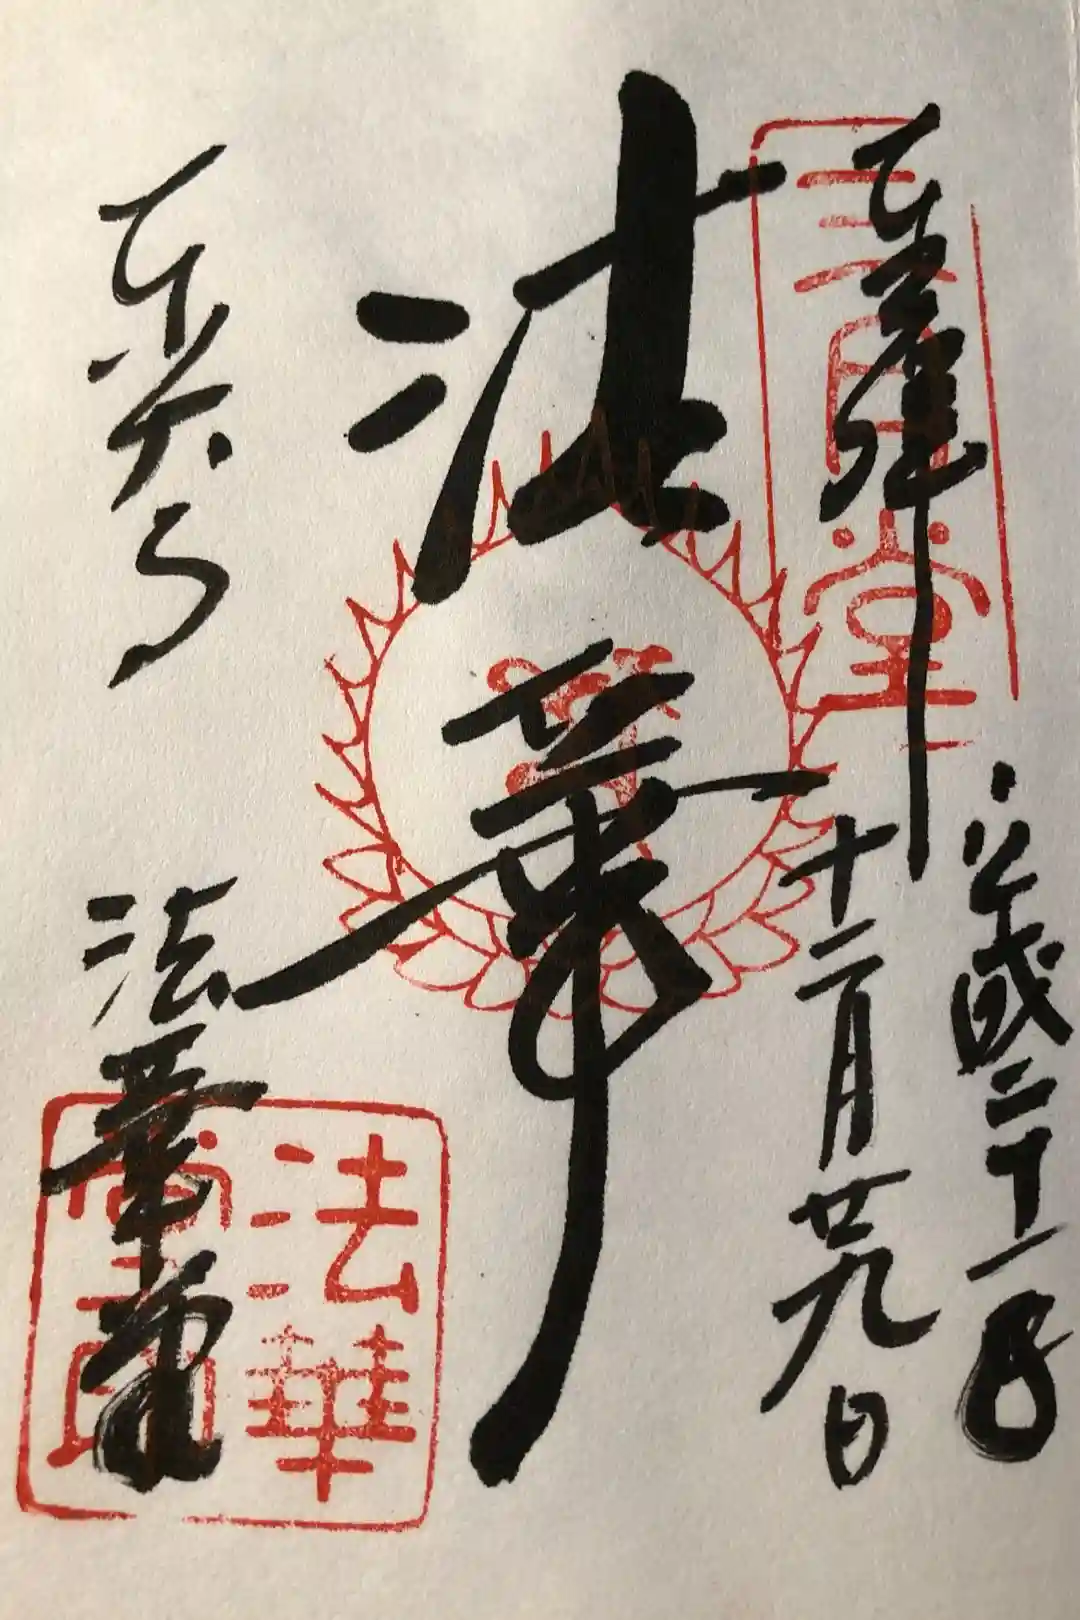 三月堂
奉拝
平成二十一年
十二月廿九日
法華
東大寺
法華堂
法華堂印